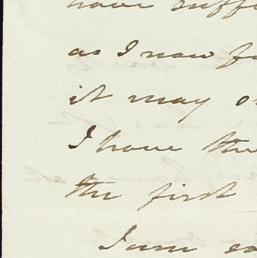 have suff
as I now f
it may o
I have the
the first
I am